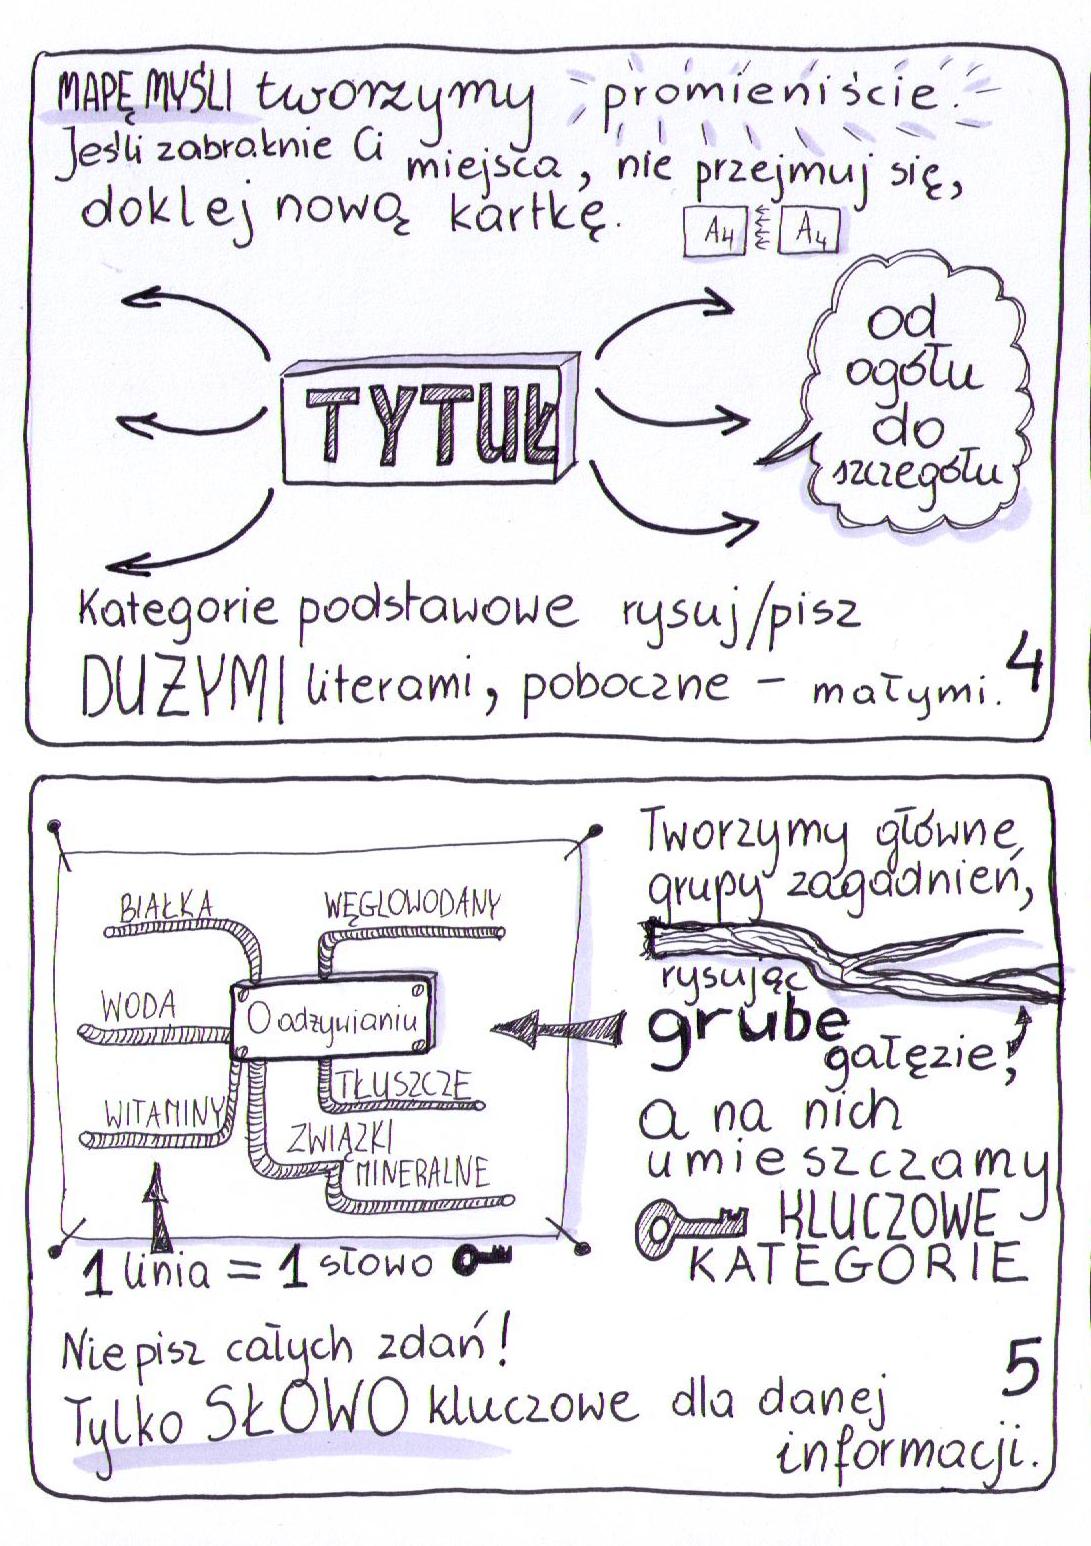 MAPĘ MYŚLI tworzymy promieniście.
Jeśli zabraknie Ci miejsca, nie przejmuj się,
doklej nową kartkę.
A4 A4
od
ogółu
do
szczegółu
TYTUŁ
Kategorie podstawowe rysuj/pisz
DUŻYMI literami, poboczne - małymi.
4
Tworzymy główne
grupy zagadnień,
rysując
grube
gałęzie,
a na nich
umieszczamy
KLUCZOWE
KATEGORIE
BIAŁKA
WĘGLOWODANY
WODA
O odżywianiu
WITAMINY
TŁUSZCZE
ZWIĄZKI
MINERALNE
1 linia = 1 słowo
Nie pisz całych zdań!
Tylko SŁOWO kluczowe dla danej
informacji.
5